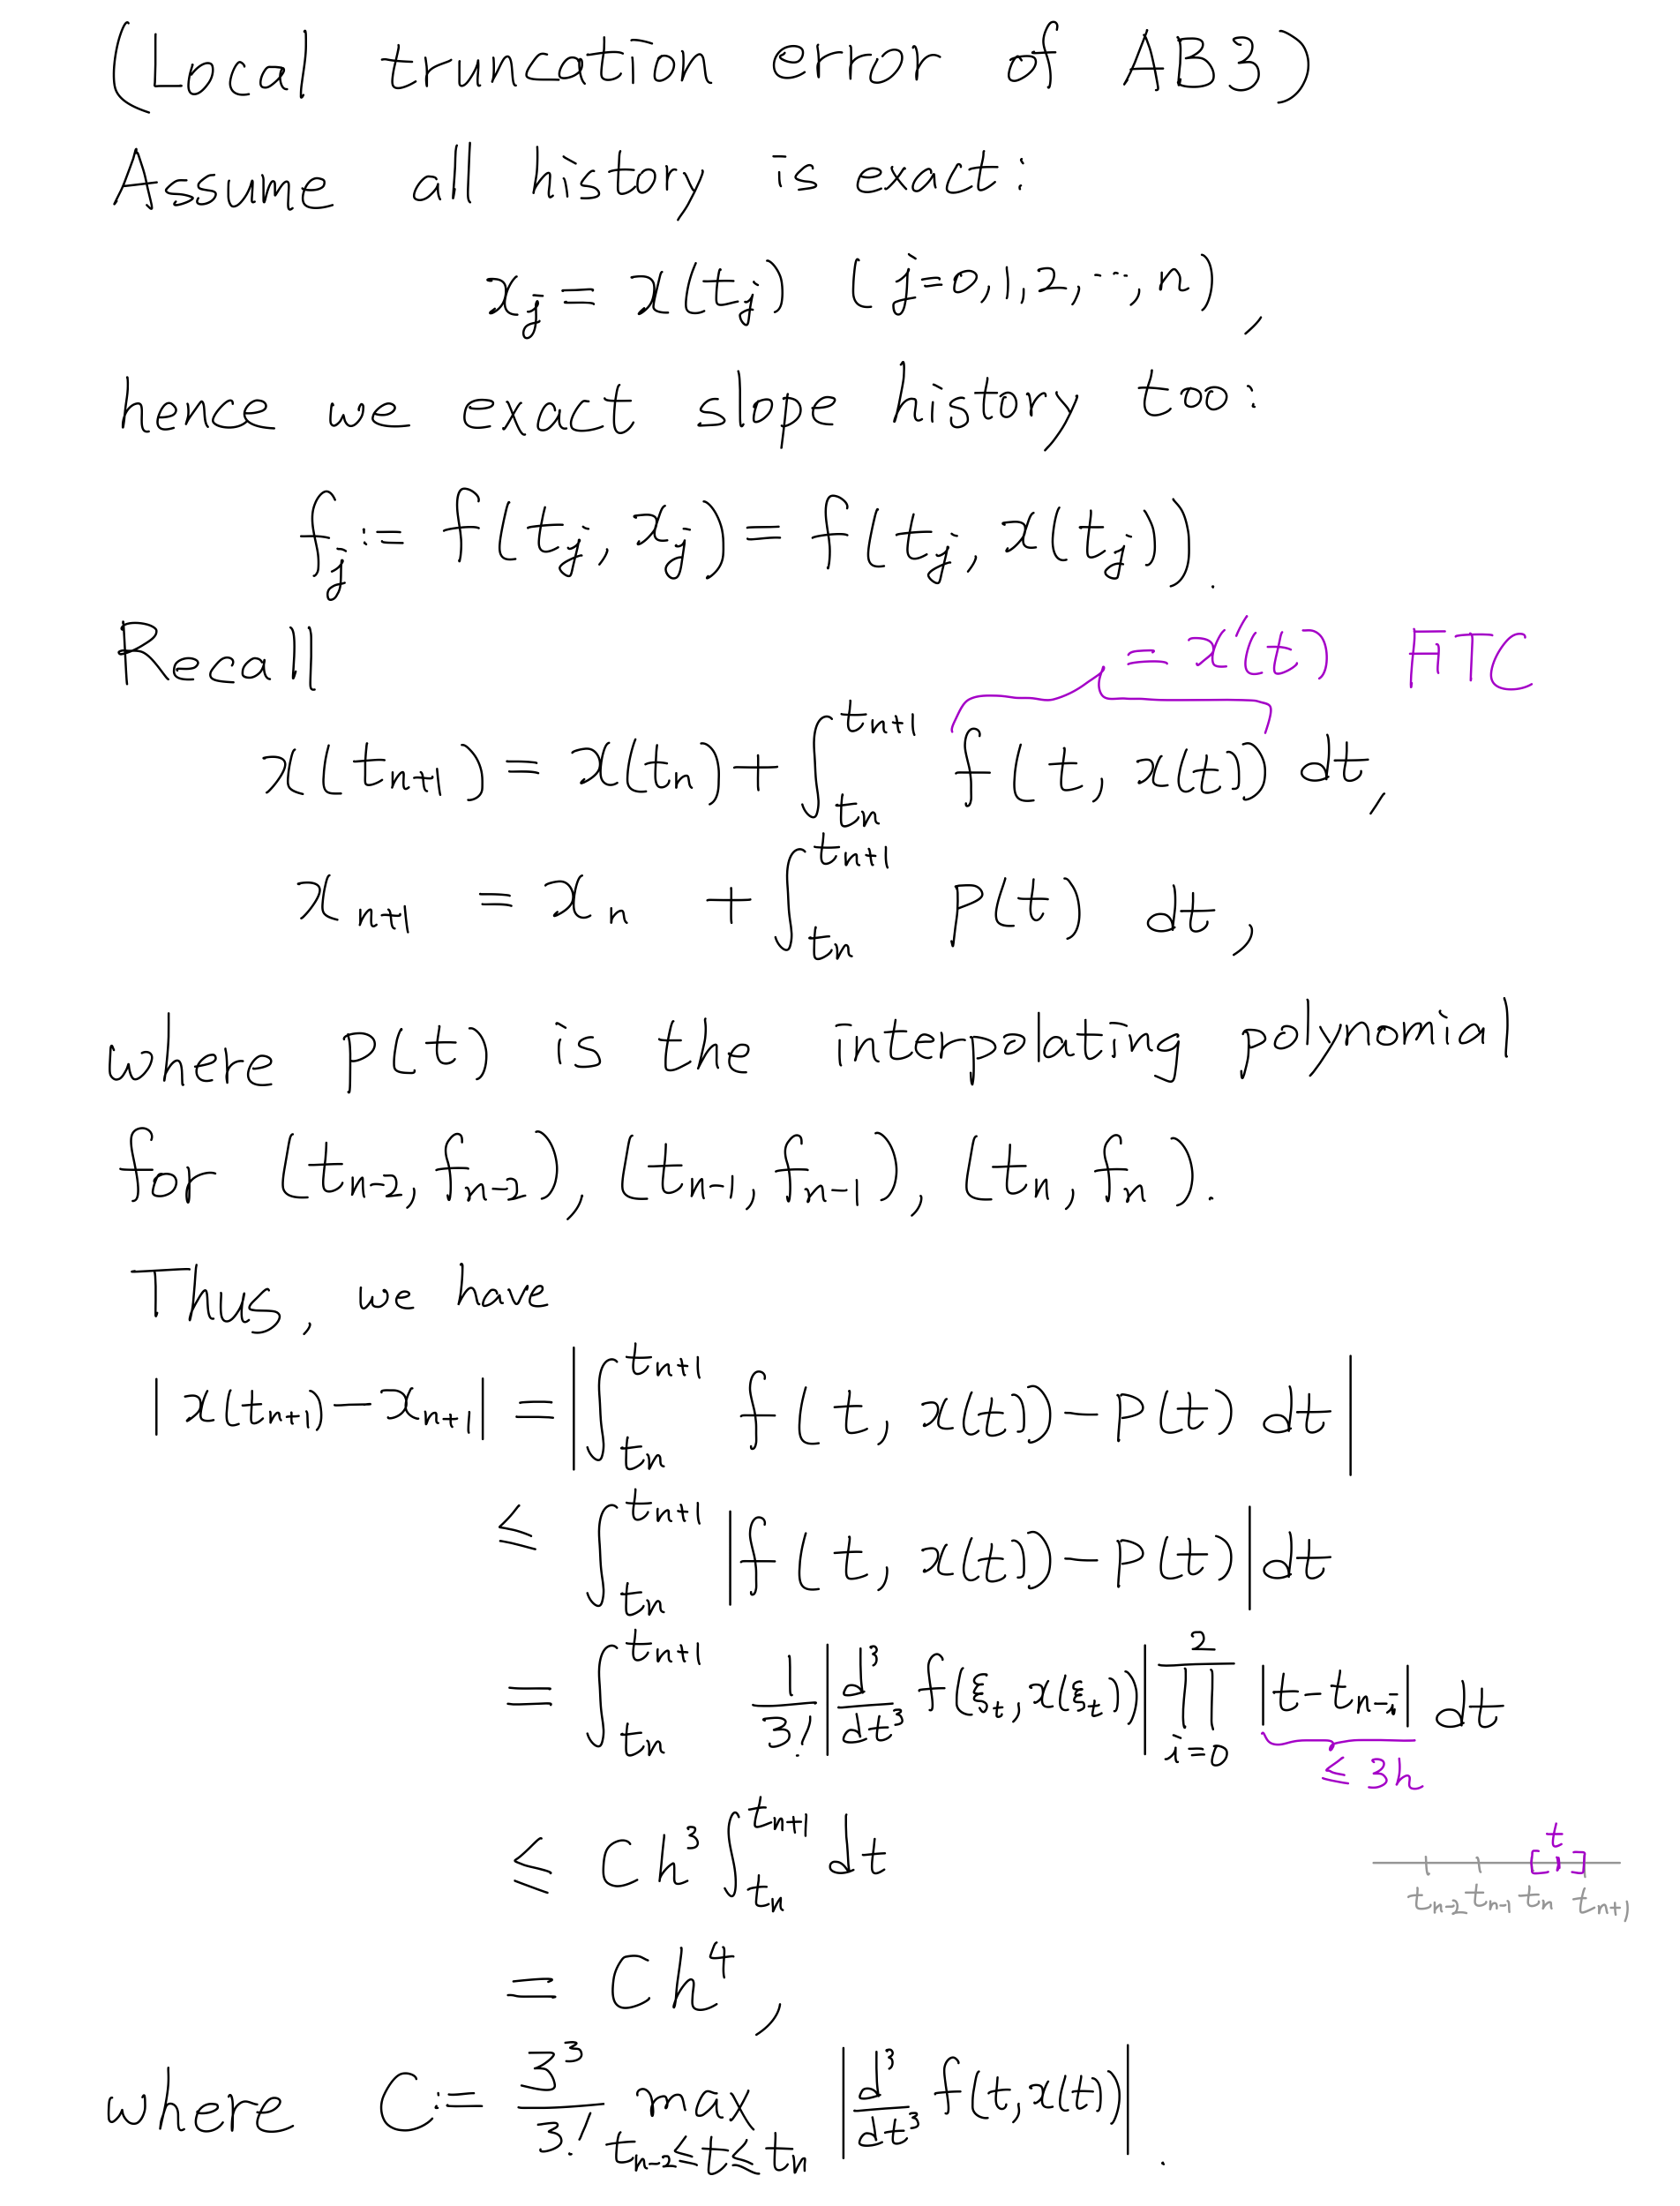 (Local truncation error of AB3)
Assume all history is exact:
x_j = x(t_j) (j=0,1,2,⋯,n),
hence we exact slope history too:
f_j := f(t_j, x_j) = f(t_j, x(t_j)).
Recall
= x'(t) FTC
x(t_{n+1}) = x(t_n) + ∫_{t_n}^{t_{n+1}} f(t, x(t)) dt,
x_{n+1} = x_n + ∫_{t_n}^{t_{n+1}} p(t) dt,
where p(t) is the interpolating polynomial
for (t_{n-2}, f_{n-2}), (t_{n-1}, f_{n-1}), (t_n, f_n).
Thus, we have
|x(t_{n+1}) - x_{n+1}| = |∫_{t_n}^{t_{n+1}} f(t, x(t)) - p(t) dt|
≤ ∫_{t_n}^{t_{n+1}} |f(t, x(t)) - p(t)| dt
= ∫_{t_n}^{t_{n+1}} 1/3! |d³/dt³ f(ξ_t, x(ξ_t))| ∏_{i=0}^{2} |t - t_{n-i}| dt
≤ 3h
≤ Ch³ ∫_{t_n}^{t_{n+1}} dt
t
t_{n-2} t_{n-1} t_n t_{n+1}
= Ch⁴,
where C := 3³/3! max_{t_{n-2} ≤ t ≤ t_n} |d³/dt³ f(t, x(t))|.